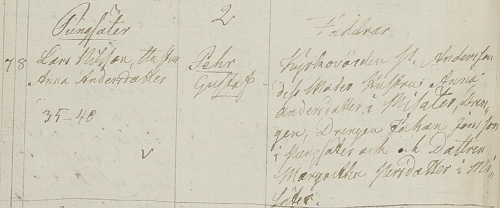 Pungsäter
2
Faddrar
78
Lars Nilsson, Hustrun
Anna Andersdatter
35-40
v
Pehr
Gustaf
Kyrkovärden P. Andersson
des Moder Hustru Anna
Andersdatter i Misäter, Dren-
gen, Drengen Johan Jonsson
i Pungsäter och Dattren
Margretha Persdatter i Mi-
säter